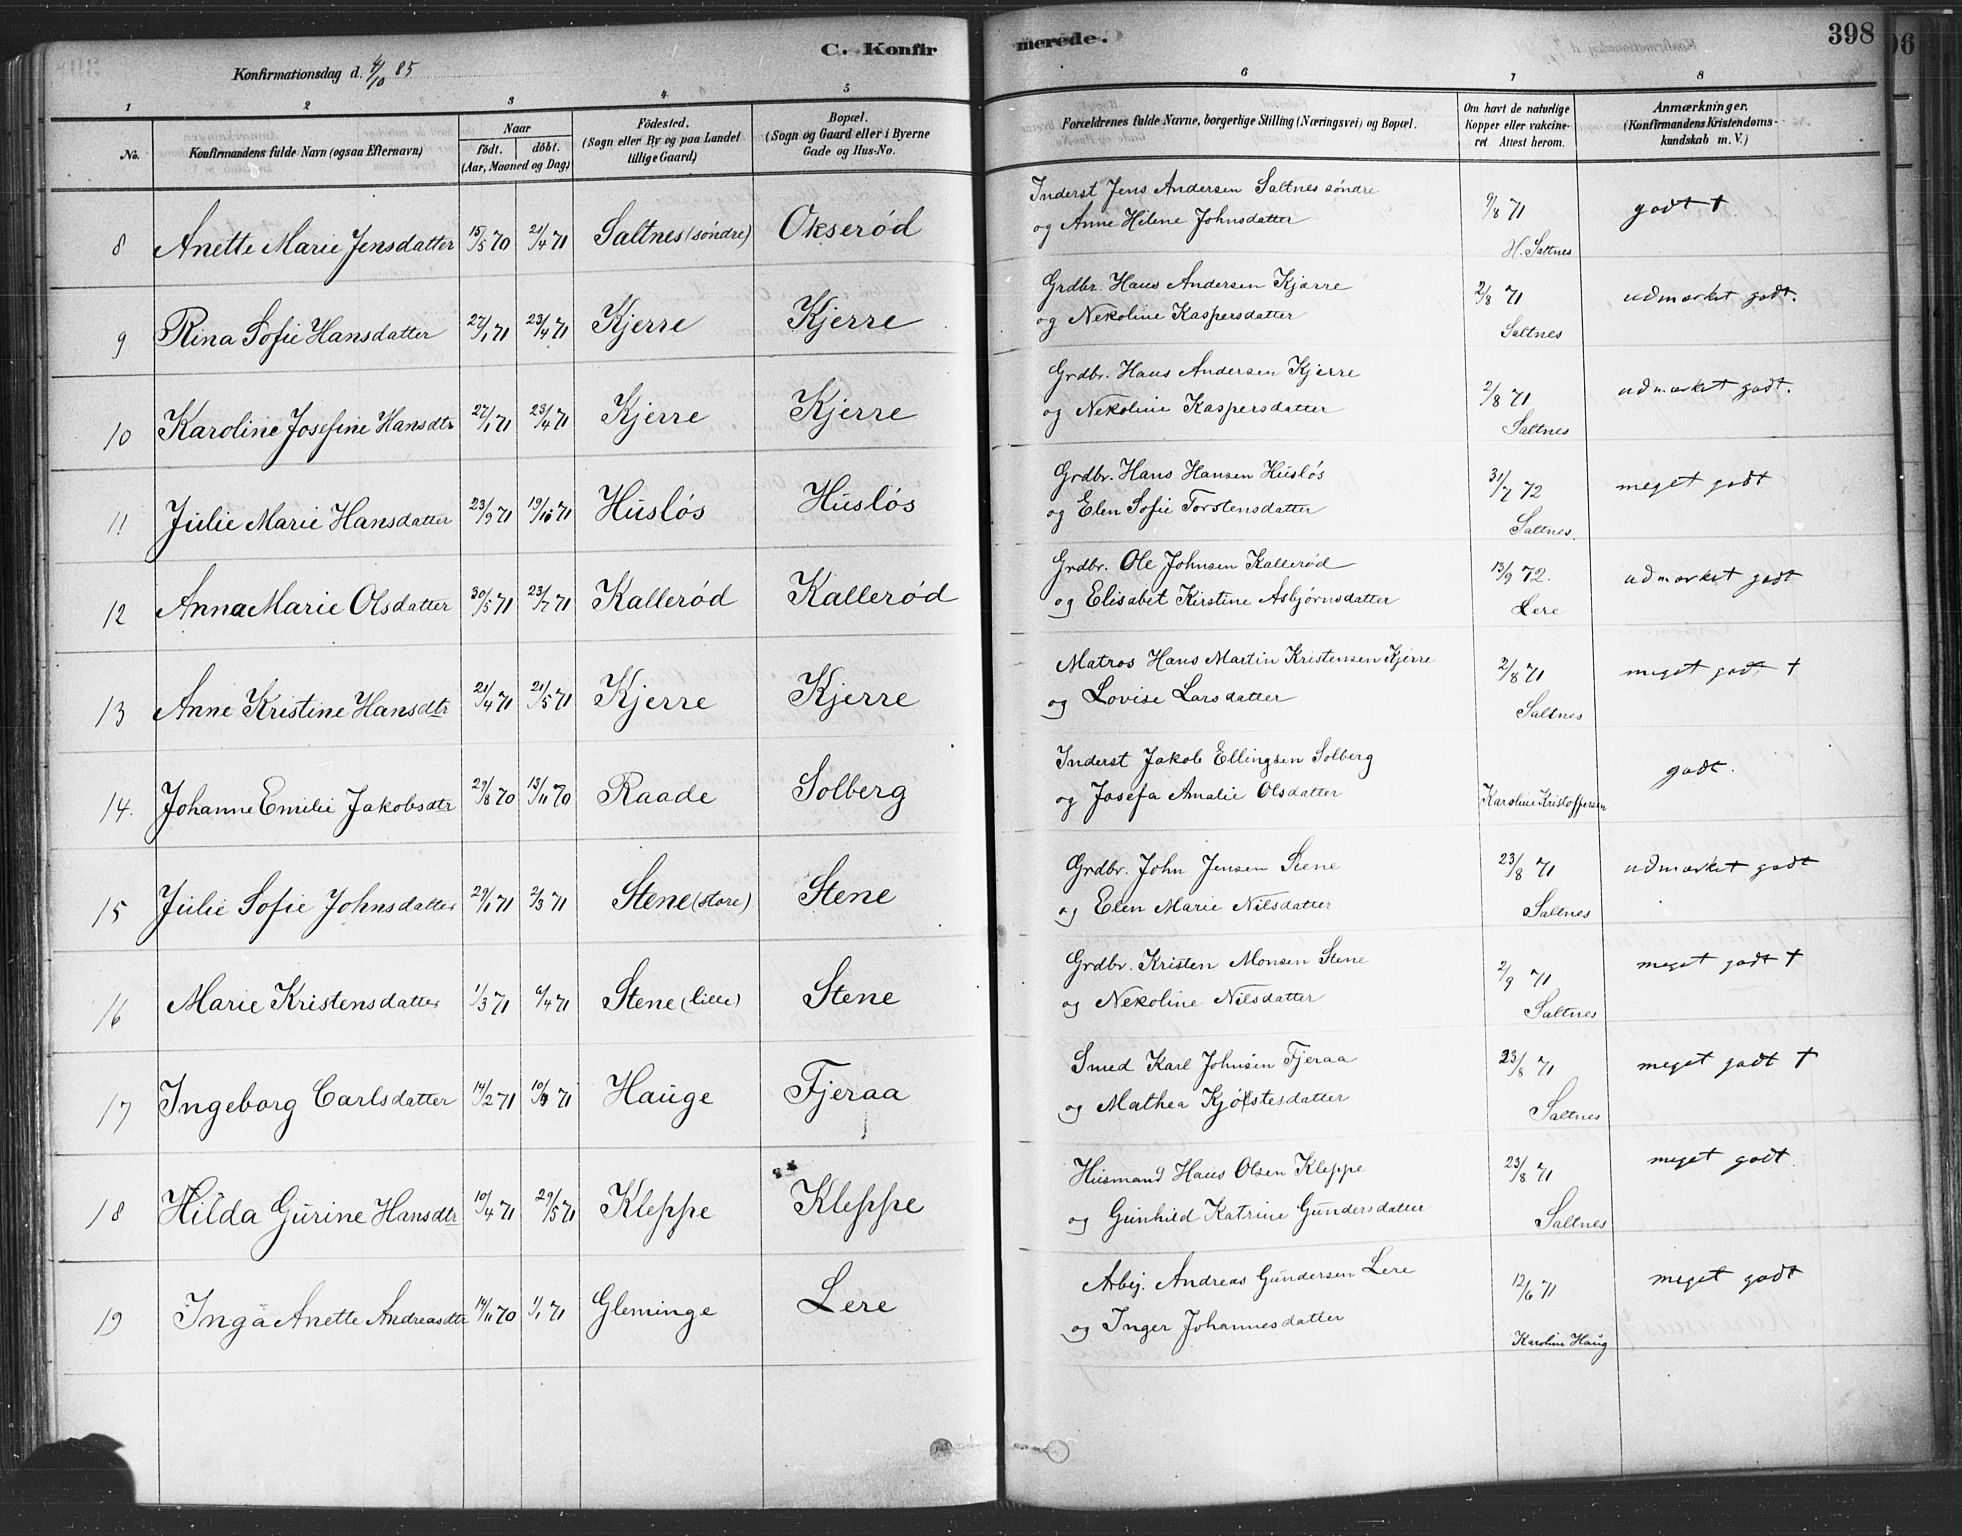 C. Konfirmerede. 398
Konfirmationsdag d. 4/10 85
1 2 3 4. 5 6 7 8
No. Konfirmandens fulde Navn (ogsaa Efternavn) Naar födt. döbt. (Aar, Maaned og Dag) Födested. (Sogn eller By og paa Landet tillige Gaard) Bopæl. (Sogn og Gaard eller i Byerne Gade og Hus-No. Forældrenes fulde Navne, borgerlige Stilling (Næringsvei) og Bopæl. Om havt de naturlige Kopper eller vakcineret Attest herom. Anmærkninger. (Konfirmandens Kristendomskundskab m. V.)
8 Anette Marie Jensdatter 15/5 70 21/4 71 Saltnes (søndre) Okserød Inderst Jens Andersen Saltnes søndre og Anne Helene Johnsdatter 9/8 71 H. Saltnes godt +
9 Rina Sofie Hansdatter 27/1 71 23/4 71 Kjerre Kjerre Grdbr. Hans Andersen Kjærre og Nekoline Kaspersdatter 2/8 71 Saltnes udmærket godt.
10 Karoline Josefine Hansdtr 27/1 71 23/4 71 Kjerre Kjerre Grdbr. Hans Andersen Kjerre og Nekoline Kaspersdatter 2/8 71 Saltnes udmærket godt.
11 Julie Marie Hansdatter 23/9 71 19/10 71 Husløs Husløs Grdbr. Hans Hansen Husløs og Elen Sofie Torstensdatter 31/7 72 Saltnes. meget godt
12 Anna Marie Olsdatter 30/5 71 23/7 71 Kallerød Kallerød Grdbr. Ole Johnsen Kallerød og Elisabet Kirstine Asbjørnsdatter 13/9 72. Lere udmærket godt
13 Anne Kristine Hansdtr 21/4 71 21/5 71 Kjerre Kjerre Matros Hans Martin Kristensen Kjerre og Lovise Larsdatter 2/8 71 Saltnes meget godt +
14. Johanne Emilie Jakobsdtr 29/8 70 13/11 70 Raade Solberg Inderst Jakob Ellingsen Solberg og Josefa Amalie Olsdatter Karoline Kristoffersen godt.
15 Julie Sofie Johnsdatter 29/1 71 2/3 71 Stene (store) Stene Grdbr. John Jensen Stene og Elen Marie Nilsdatter 23/8 71 Saltnes udmærket godt
16 Marie Kristensdatter 1/3 71 6/4 71 Stene (lille) Stene Grdbr. Kristen Monsen Stene og Nekoline Nilsdatter 2/9 71 Saltnes meget godt +
17 Ingeborg Carlsdatter 14/2 71 10/ 71 Hauge Fjeraa Smed Karl Johnsen Fjeraa og Mathea 23/8 71 Saltnes meget godt +
18 Hilda Gurine Hansdtr 10/4 71 29/5 71 Kleppe Kleppe Husmand Hans Olsen Kleppe og Gunhild Katrine Gundersdatter 23/8 71 Saltnes meget godt.
19 Inga Anette Andreasdtr 14/11 70 1/1 71 Gleminge Lere Arbej. Andreas Gundersen Lere og Inger Johannesdatter 12/6 71 Karolin Haug meget godt